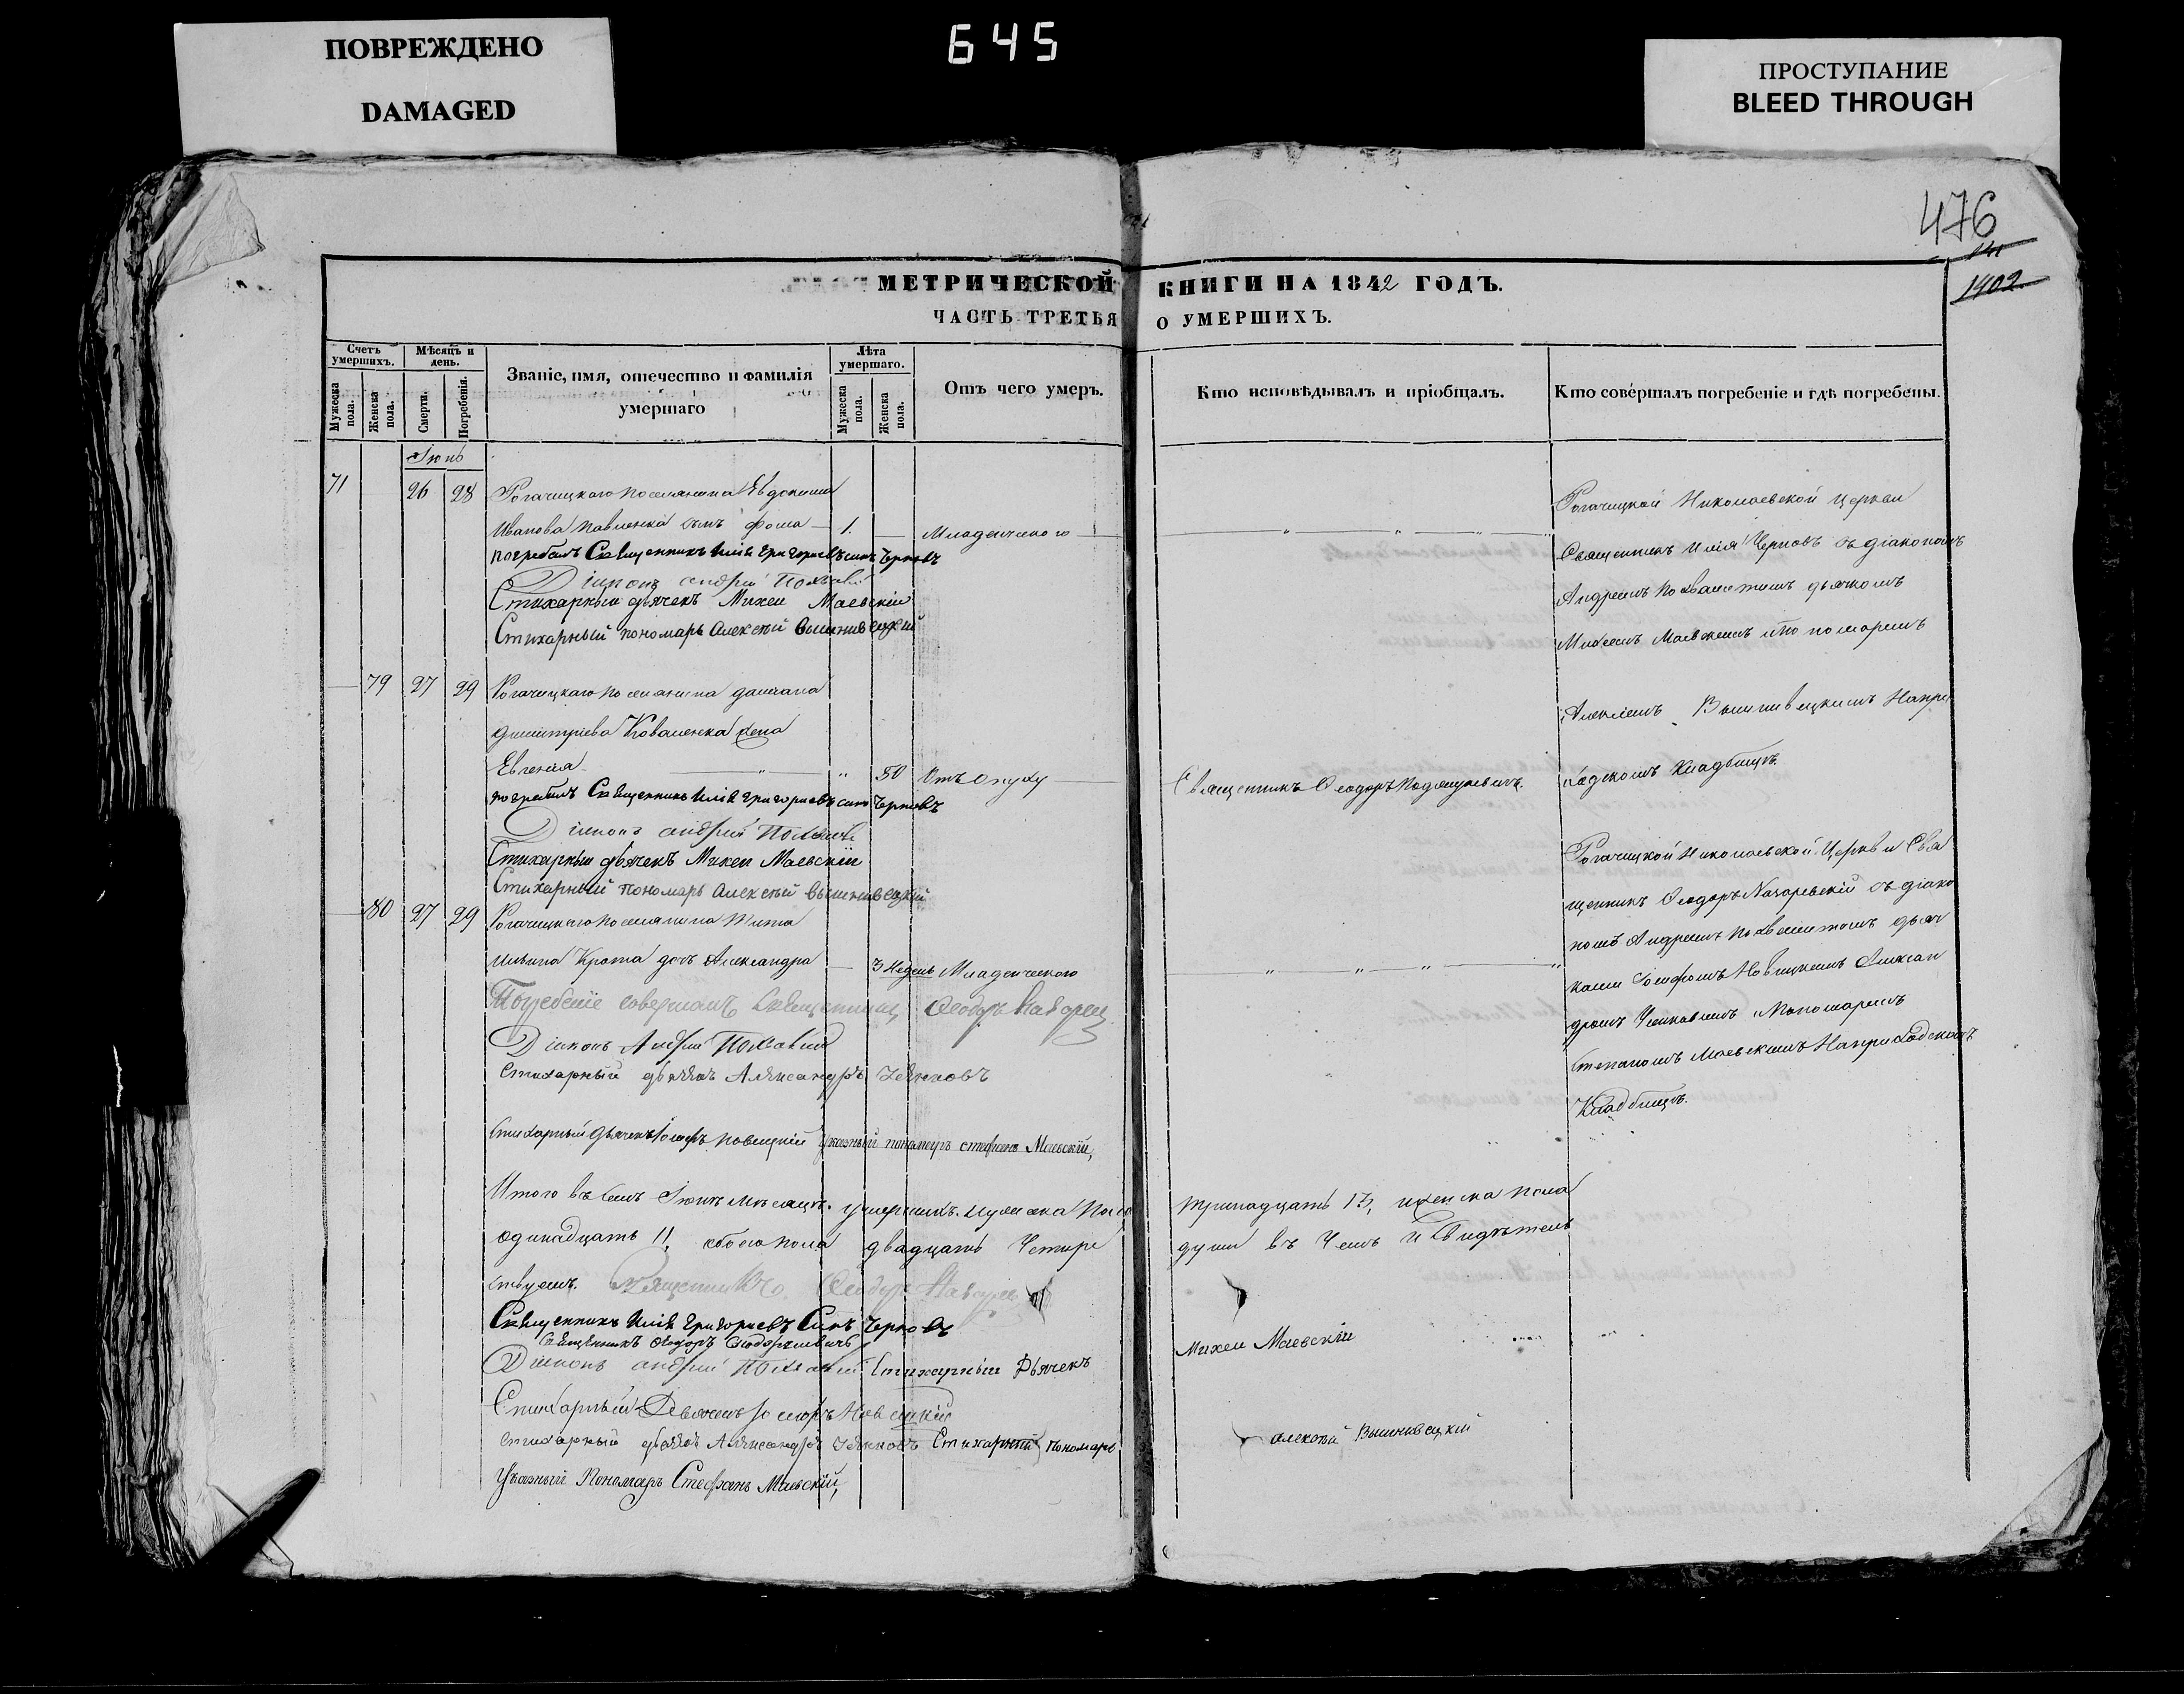 ПОВРЕЖДЕНО
DAMAGED
645
ПРОСТУПАНИЕ
BLEED THROUGH
476
1902
МЕТРИЧЕСКОЙ КНИГИ НА 1842 ГОДЪ.
ЧАСТЬ ТРЕТЬЯ О УМЕРШИХЪ.
Счетъ умершихъ.
Мужеска пола.
Женска пола.
Мѣсяцъ и день.
Смерти.
Погребенія.
Званіе, имя, отечество и фамилія умершаго
Лѣта умершаго.
Мужеска пола.
Женска пола.
Отъ чего умеръ.
Кто исповѣдывалъ и пріобщалъ.
Кто совершалъ погребеніе и гдѣ погребены.
Іюнь
71 26 28 Рогачицкаго поселянина Евдокима
Иванова Павленка сынъ Фома 1. Младенческого
погребалъ Священникъ Илія Григориевъ сынъ Черновъ
Діаконъ Андрей
Стихарный дьячекъ Михей Маевскій
Стихарный пономарь Алексѣй Вышневецкий
Рогачицкой Николаевской Церкви
Священникъ Илія Черновъ съ діакономъ
Андреемъ дьячкомъ
Михеемъ Маевскимъ и пономаремъ
Алексѣемъ Вышневецкимъ На при
ходскомъ Кладбищѣ
79 27 29 Рогачицкаго поселянина Даміана
Димитріева Коваленка жена
Евгенія 50 Отъ опуху
Священникъ Ѳеодоръ
погребалъ Священникъ Илія Григориевъ сынъ Черновъ
Діаконъ Андрей
Стихарный дьячекъ Михеи Маевскіи
Стихарный пономарь Алексѣй Вышневецкий
80 27 29 Рогачицкаго поселянина Тита
Ильина Крота дочь Александра 3 недель Младенческого
Погребеніе совершалъ Священникъ Ѳеодоръ
Діаконъ Андрей
Стихарный дьячекъ Александръ
Стихарный Дьячекъ Іосифъ Новицкій Указный пономарь Стефанъ Маевскій,
Рогачицкой Николаевской Церкви Свя
щенникъ Ѳеодоръ съ діако
номъ Андреемъ дьяч
ками Іосифомъ Новицкимъ Алексан
дромъ и Пономаремъ
Стефаномъ Маевскимъ На приходскомъ
Кладбищѣ.
Итого въ семъ Іюнѣ мѣсяцѣ умершихъ мужеска пола тринадцать 13, женска пола
одинадцать 11, обоего пола двадцать четыре души въ чемъ и свидѣтель
ствуемъ. Священникъ Ѳеодоръ
Священникъ Илія Григориевъ Сынъ Черновъ
Священникъ Ѳеодоръ
Діаконъ Андрей Стихарныи Дьячекъ Михеи Маевскіи
Стихарный Дьячекъ Іосифъ Новицкій
Стихарный дьячекъ Александръ Стихарный пономарь Алексѣй Вышневецкій
Указный Пономарь Стефанъ Маевскій,